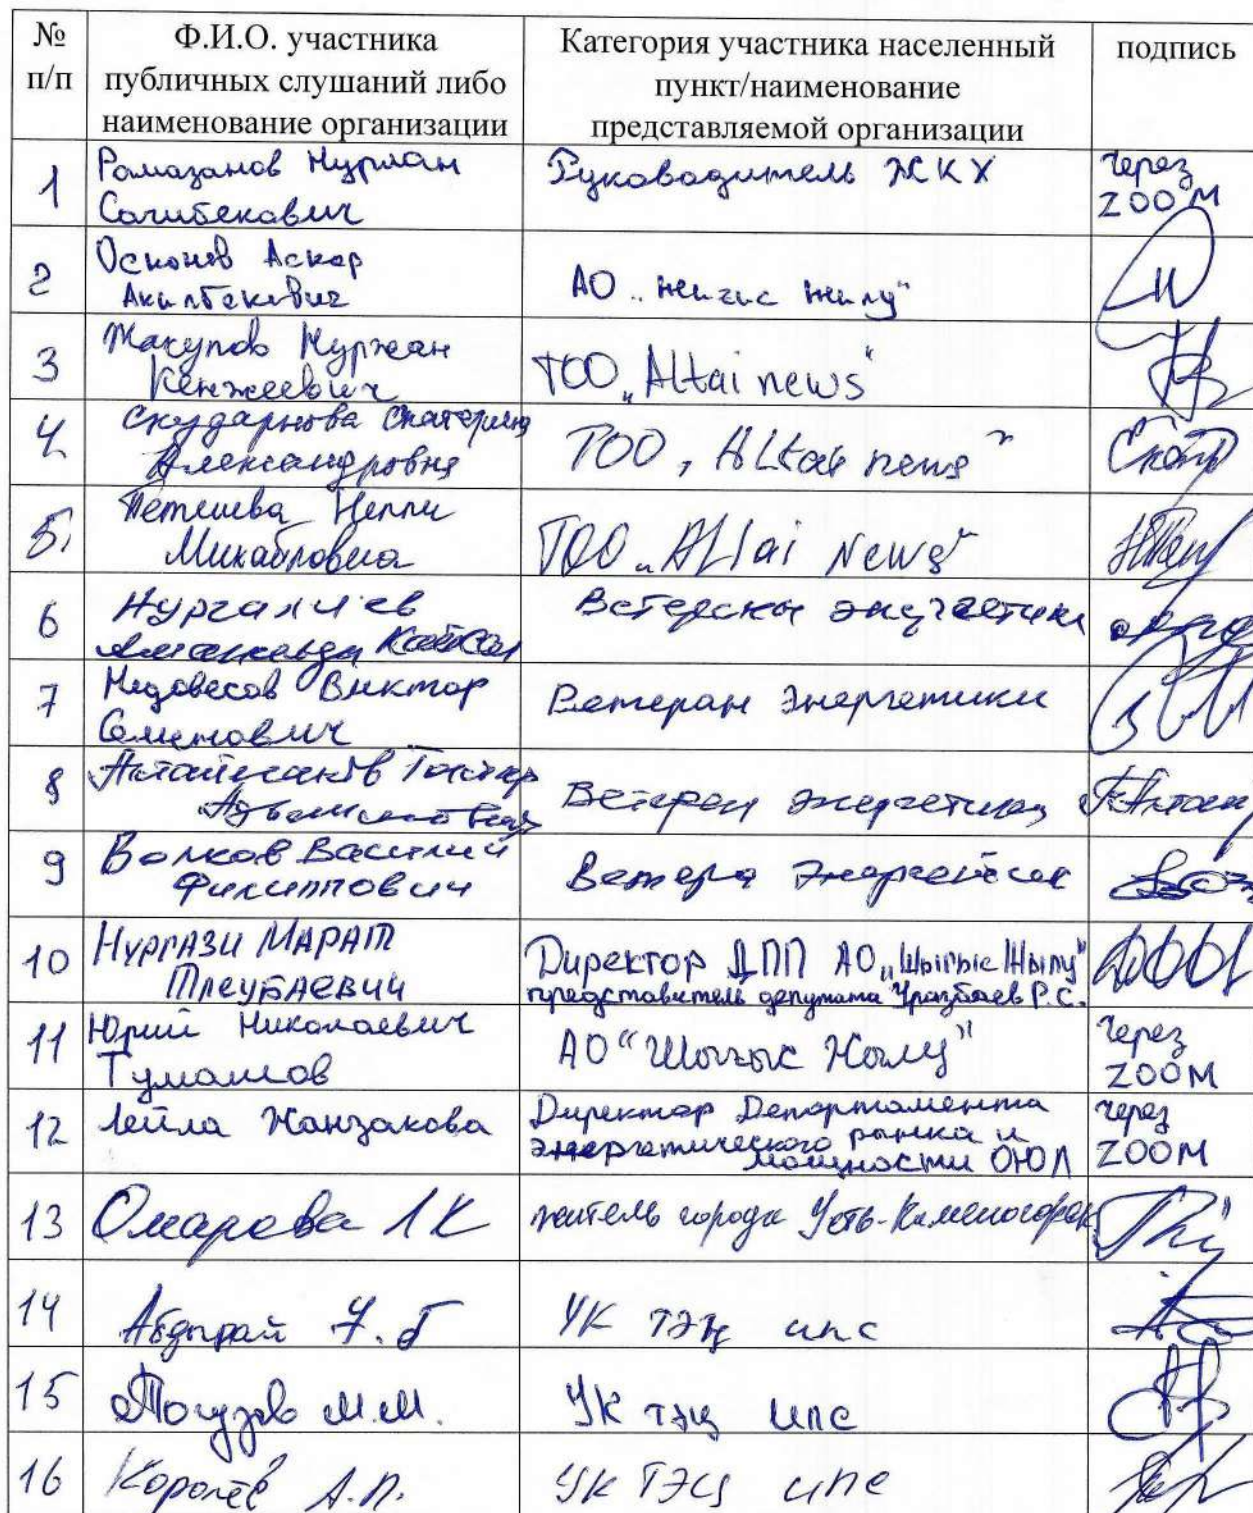 № п/п
Ф.И.О. участника публичных слушаний либо наименование организации
Категория участника населенный пункт/наименование представляемой организации
подпись
1 Рамазанов Нурлан Сагибекович
Руководитель ЖКХ
через ZOOM
2 Аскар
АО
3 Жакупов Нуржан Кенжеевич
ТОО „Altai news"
4 Скударнова Екатерина Александровна
ТОО „Altai news"
5. Нелли Михайловна
ТОО „Altai News"
6 Нургалиев
7 Недовесов Виктор Семенович
Ветеран Энергетики
8
Ветеран энергетики
9 Волков Василий Филиппович
10 Нургази Марат Тлеубаевич
Директор ДПП АО „Шығыс Жылу"
представитель депутата Уразбаев Р.С.
11 Юрий Николаевич Тумашов
АО "Шыгыс Жылу"
через ZOOM
12 Лейла Жанзакова
Директор Департамента
энергетического рынка и
мощности ОЮЛ
через ZOOM
13 Омарова Л К
житель города Усть-Каменогорск
14 Абдырай
УК ТЭЦ ипс
15 М.М.
УК тэц ипс
16 Королёв А.П.
УК ТЭЦ ипс